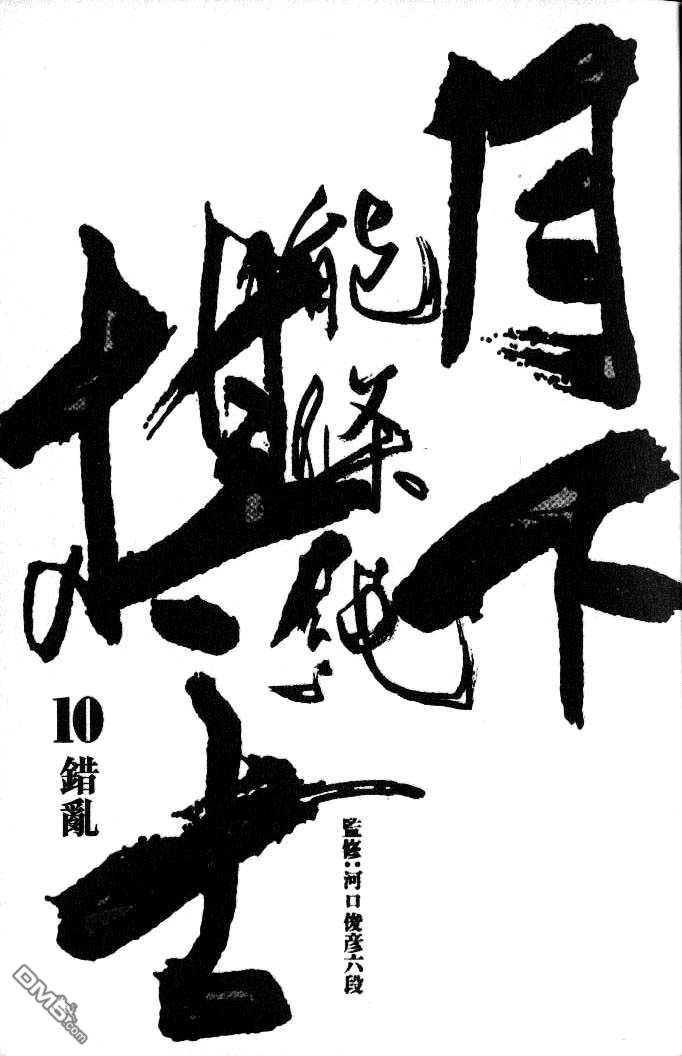 月下
棋士
能條純一
10
錯亂
監修：河口俊彦六段
DM5